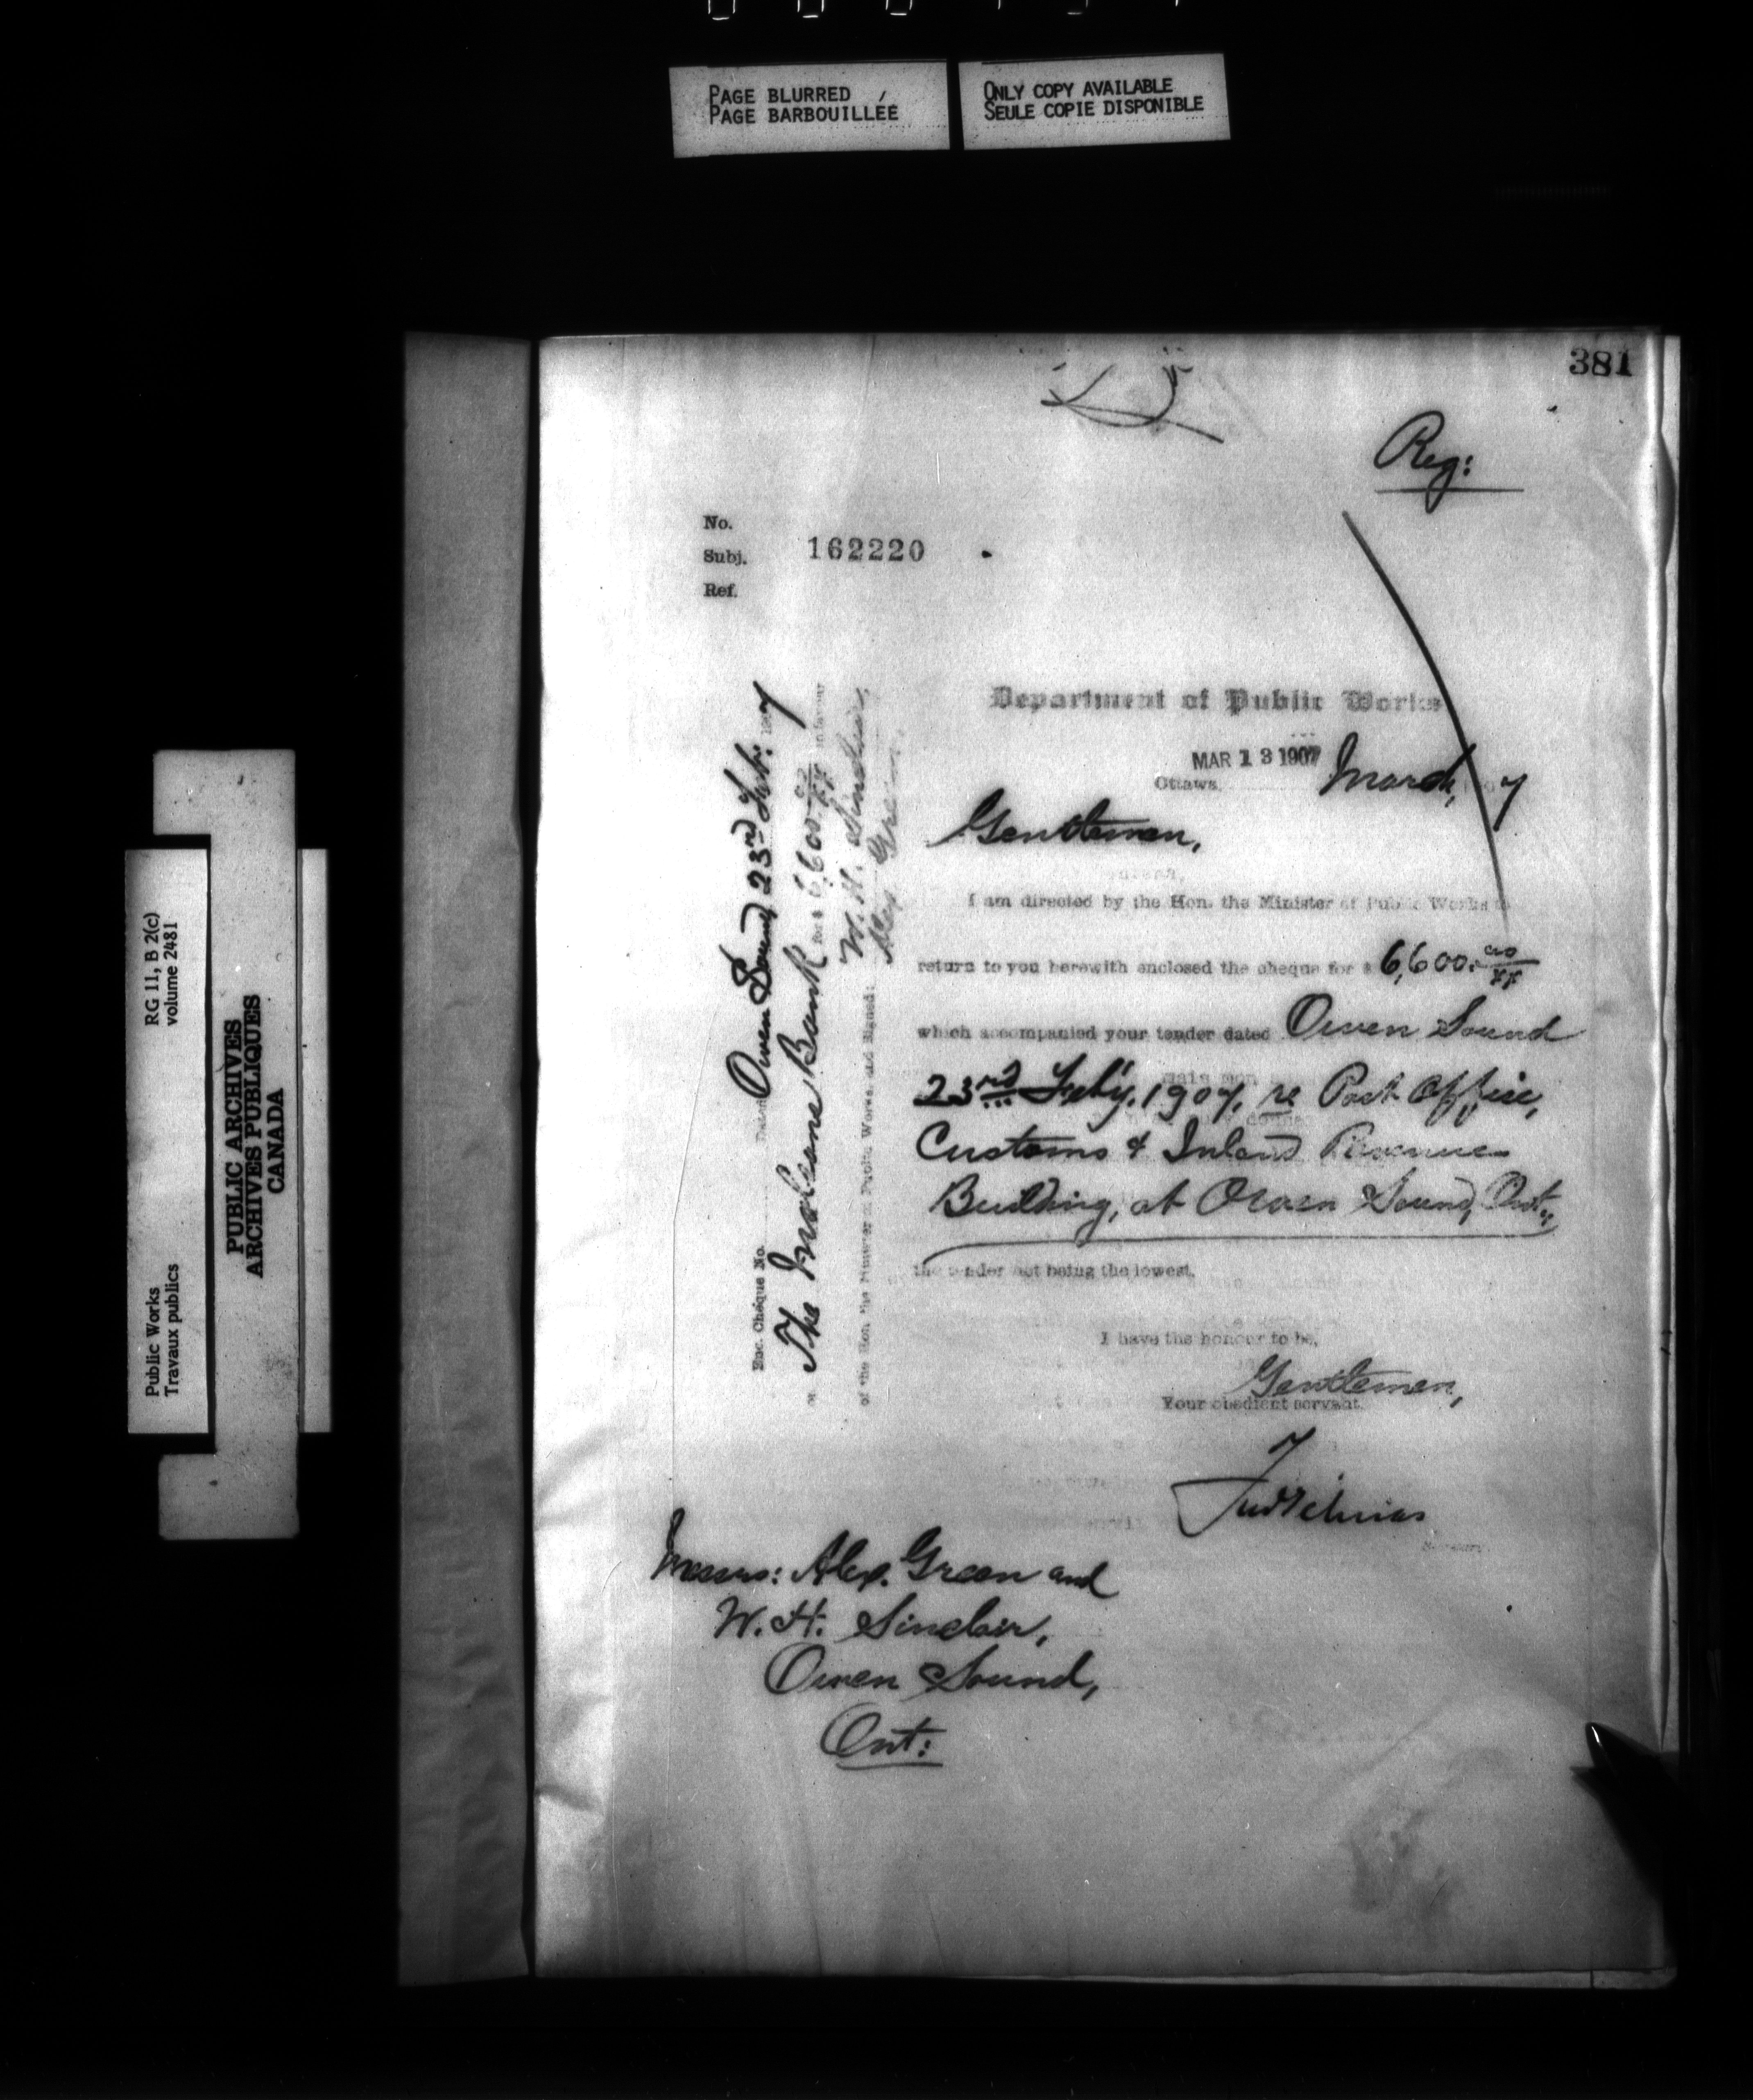 PAGE BLURRED
PAGE BARBOUILLÉE
ONLY COPY AVAILABLE
SEULE COPIE DISPONIBLE
381
Reg:
No.
Subj. 162220
Ref.
Department of Public Works
MAR 13 1907
Ottawa, March, 7
Gentlemen,
I am directed by the Hon. the Minister of Public Works to
return to you herewith enclosed the cheque for $ 6,600.00/xx
which accompanied your tender dated Owen Sound
23rd Feb'y. 1907, re Post Office,
Customs & Inland Revenue
Building, at Owen Sound, Ont.,
the tender not being the lowest.
I have the honour to be,
Gentlemen,
Your obedient servant.
Messrs: Alex. Green and
W. H. Sinclair,
Owen Sound,
Ont:
Enc. Cheque No. Dated Owen Sound, 23rd Feb. 1907
on The Molsons Bank for $ 6,600.00/xx in favour
of the Hon. the Minister of Public Works, and Signed: W. H. Sinclair,
Alex Green.
Public Works
Travaux publics
RG 11, B 2(c)
volume 2481
PUBLIC ARCHIVES
ARCHIVES PUBLIQUES
CANADA